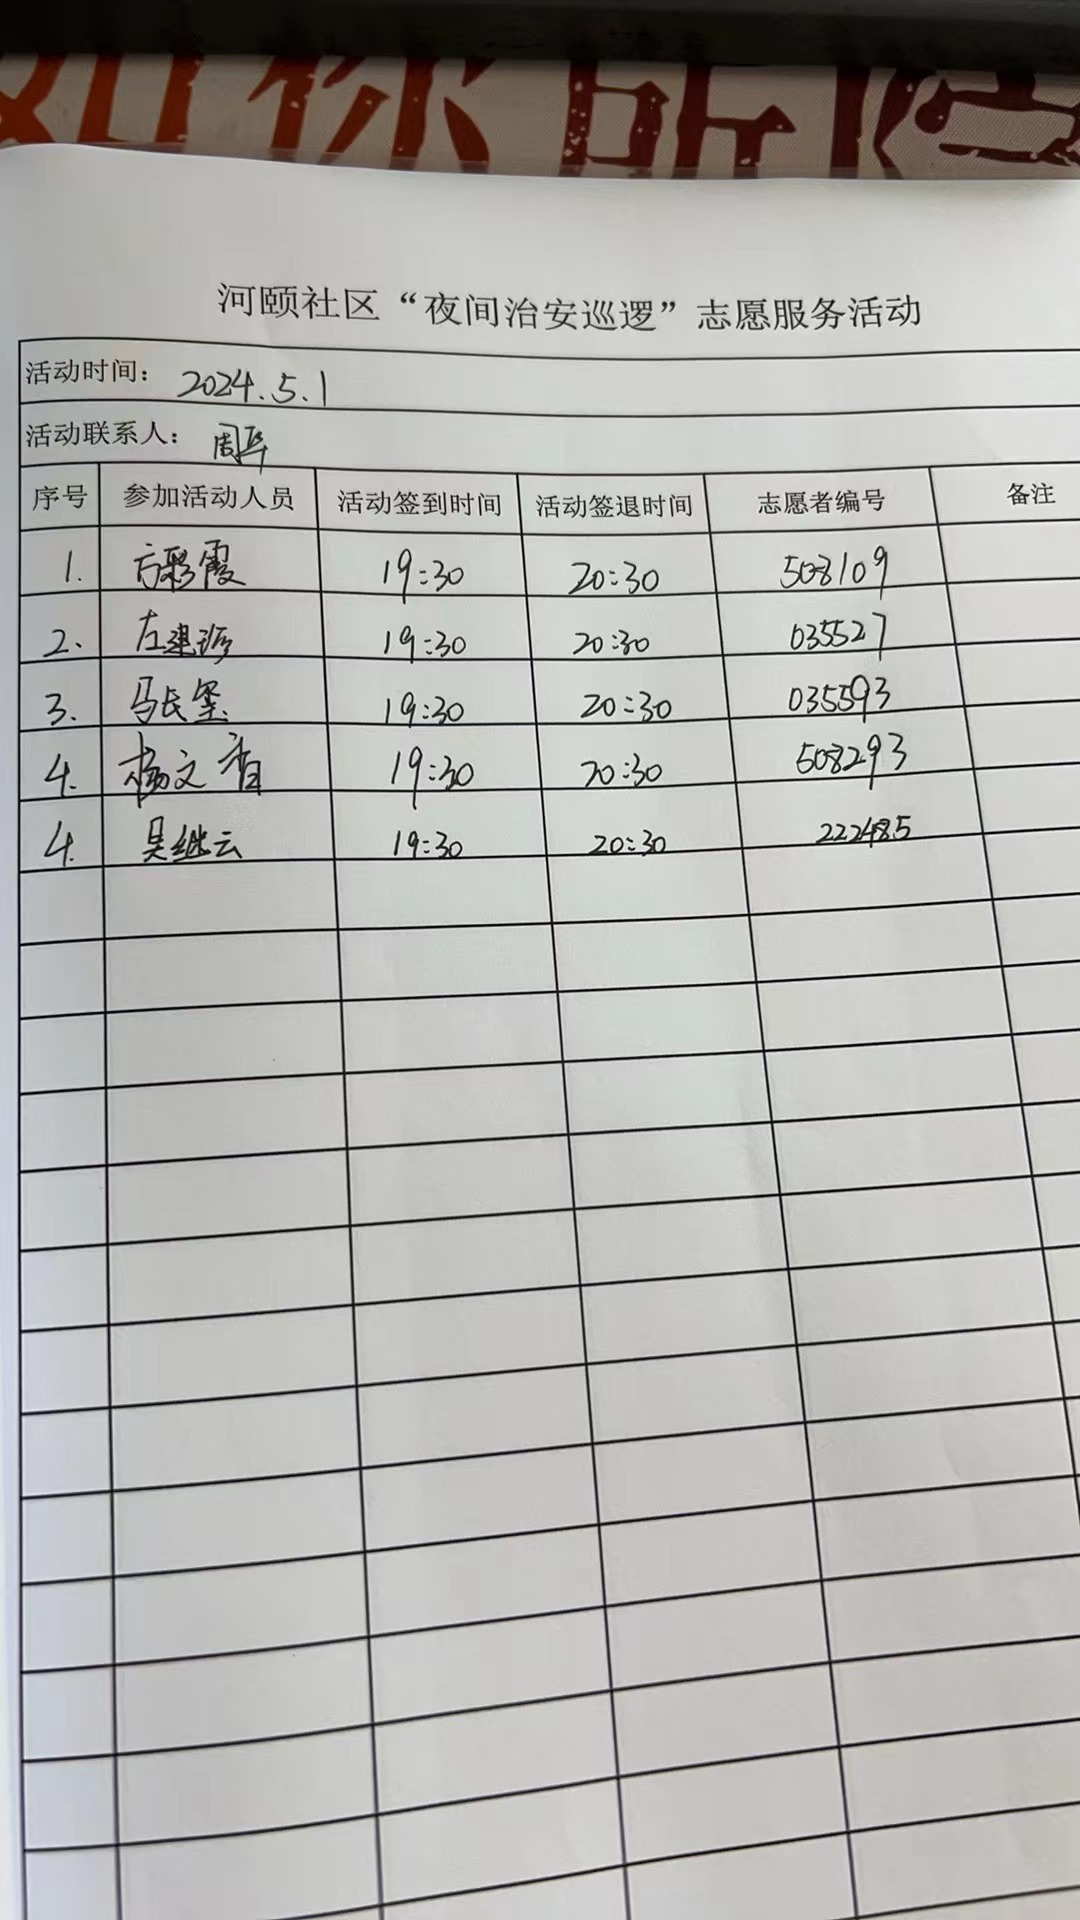 如你所
河颐社区“夜间治安巡逻”志愿服务活动
活动时间：2024.5.1
活动联系人：周华
序号 参加活动人员 活动签到时间 活动签退时间 志愿者编号 备注
1. 方彩霞 19:30 20:30 508109
2、 左建珍 19:30 20:30 035527
3. 马长玺 19:30 20:30 035593
4. 杨文香 19:30 20:30 508293
4. 吴继云 19:30 20:30 222485